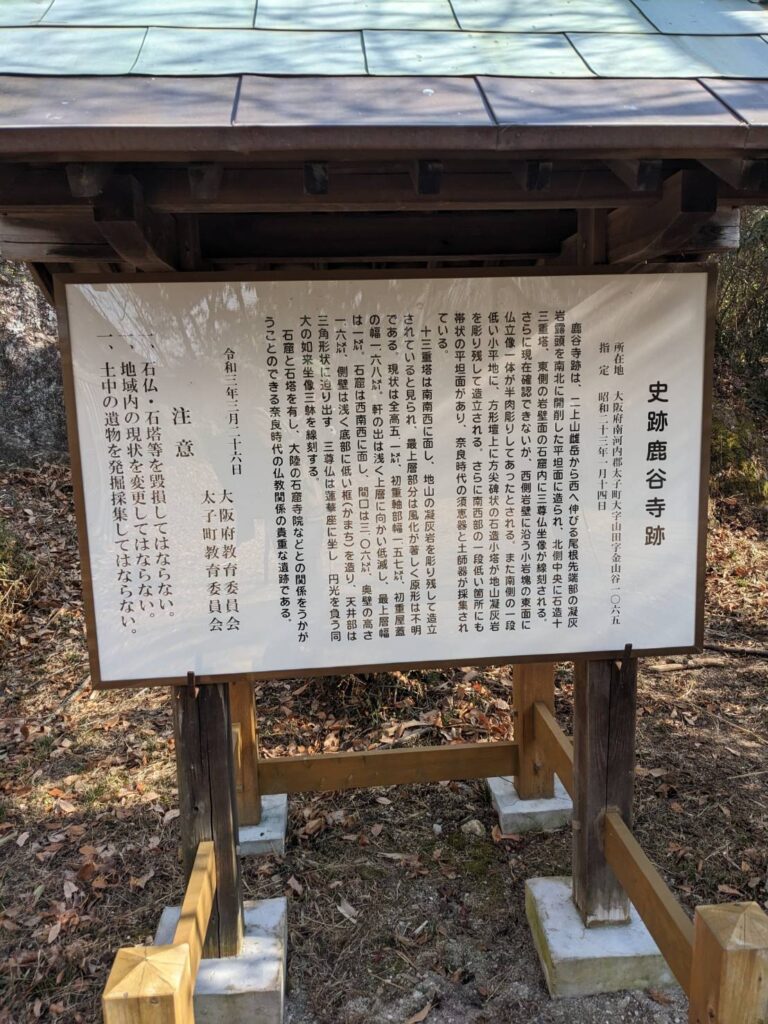 史跡鹿谷寺跡
所在地　大阪府南河内郡太子町大字山田字金山谷一〇六五
指　定　昭和二十三年一月十四日
鹿谷寺跡は、二上山雌岳から西へ伸びる尾根先端部の凝灰
岩露頭を南北に開削した平坦面に造られ、北側中央に石造十
三重塔、東側の岩壁面の石窟内に三尊仏坐像が線刻される。
さらに現在確認できないが、西側岩壁に沿う小岩塊の東面に
仏立像一体が半肉彫りしてあったとされる。また南側の一段
低い小平地に、方形壇上に方尖碑状の石造小塔が地山凝灰岩
を彫り残して造立される。さらに南西部の一段低い箇所にも
帯状の平坦面があり、奈良時代の須恵器と土師器が採集され
ている。
十三重塔は南南西に面し、地山の凝灰岩を彫り残して造立
されていると見られ、最上層部分は風化が著しく原形は不明
である。現状は全高五一㍍、初重軸部幅一五七㌢、初重屋蓋
の幅一六八㌢。軒の出は浅く上層に向かい低減し、最上層幅
は一㍍。石窟は西南西に面し、間口は三〇六㌢、奥壁の高さ
一六㍍、側壁は浅く底部に低い框（かまち）を造り、天井部は
三角形状に迫り出す。三尊仏は蓮華座に坐し、円光を負う同
大の如来坐像三躰を線刻する。
石窟と石塔を有し、大陸の石窟寺院などとの関係をうかが
うことのできる奈良時代の仏教関係の貴重な遺跡である。
令和三年三月二十六日
大阪府教育委員会
太子町教育委員会
注　意
一、石仏・石塔等を毀損してはならない。
一、地域内の現状を変更してはならない。
一、土中の遺物を発掘採集してはならない。